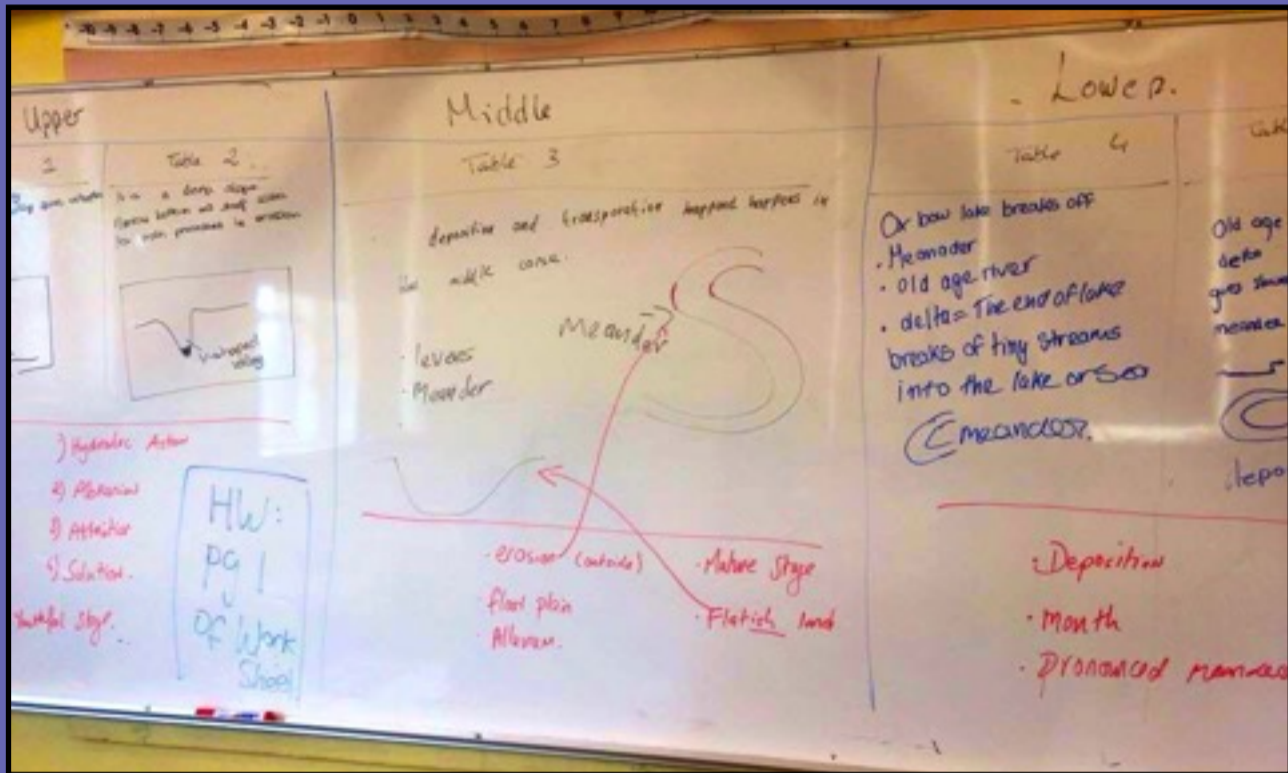 -10 -9 -8 -7 -6 -5 -4 -3 -2 -1 0 1 2 3 4 5 6 7 8 9
Upper
1
Table 2
is a deep slope
narrow bottom
main processes is erosion
V-shaped
valley
1) Hydraulic Action
3) Attrition
Solution.
Youthful stage.
HW:
pg 1
of Work
Sheet
Middle
Table 3
deposition and transporation happens in
the middle
· levees
· Meander
Meander
· erosion (outside)
· floor plain
· Mature Stage
· Flatish land
Lower.
Table 4
Ox bow lake breaks off
· Meanader
· old age river
· delta = The end of lake
breaks of tiny streams
into the lake or Sea
Old age
delta
meander
depo
· Deposition
· Month
· Pronounced